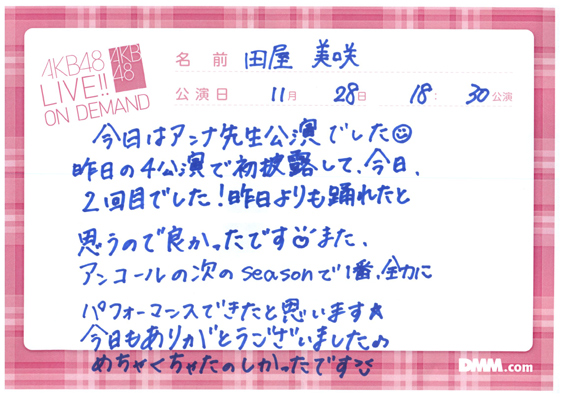 AKB48
LIVE!!
ON DEMAND
AKB
48
名前 田屋 美咲
公演日 11月 28日 18: 30公演
今日はアンナ先生公演でした☺
昨日の4公演で初披露して、今日、
2回目でした!昨日よりも踊れたと
思うので良かったです また、
アンコールの次のseasonで1番、全力に
パフォーマンスできたと思います★
今日もありがとうございました♪
めちゃくちゃたのしかったです
DMM.com